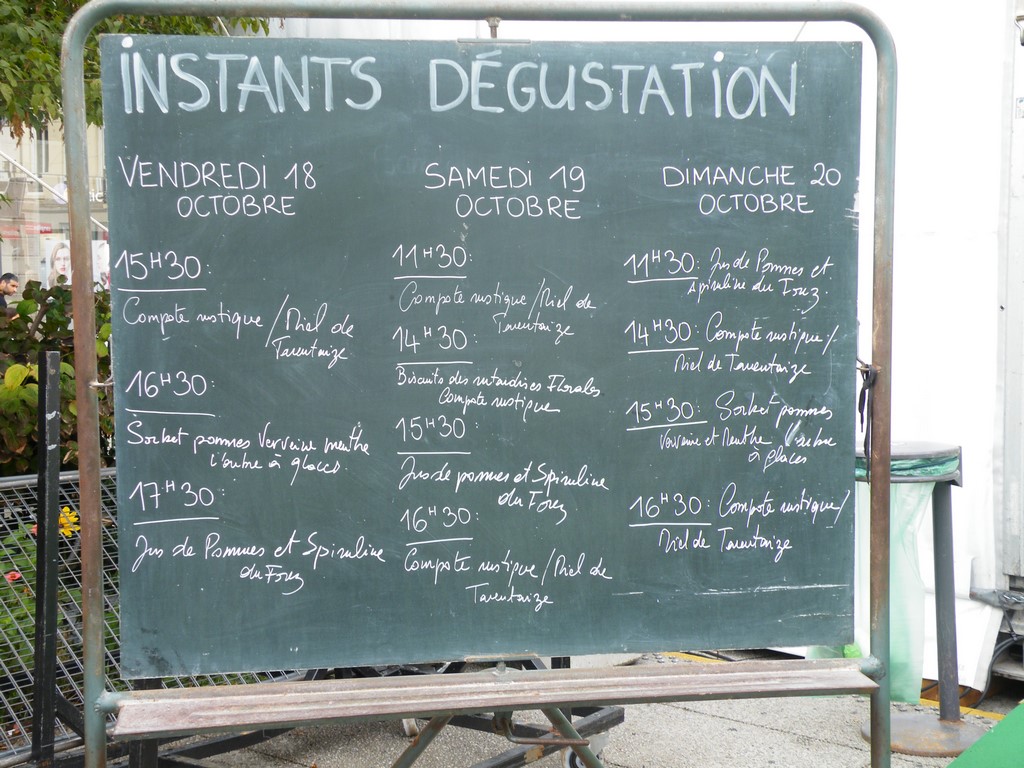 INSTANTS DÉGUSTATION
VENDREDI 18
OCTOBRE
15H30:
Compote rustique / Miel de
Tarentaize
16H30:
Sorbet pommes Verveine menthe
L'autre à glaces
17H30:
Jus de Pommes et Spiruline
du Forez
SAMEDI 19
OCTOBRE
11H30:
Compote rustique / Miel de
Tarentaize
14H30:
Biscuits des Florales
Compote rustique
15H30:
Jus de pommes et Spiruline
du Forez
16H30:
Compote rustique / Miel de
Tarentaize
DIMANCHE 20
OCTOBRE
11H30: Jus de Pommes et
Spiruline du Forez
14H30: Compote rustique /
Miel de Tarentaize
15H30: Sorbet pommes
Verveine et Menthe
à glaces
16H30: Compote rustique /
Miel de Tarentaize